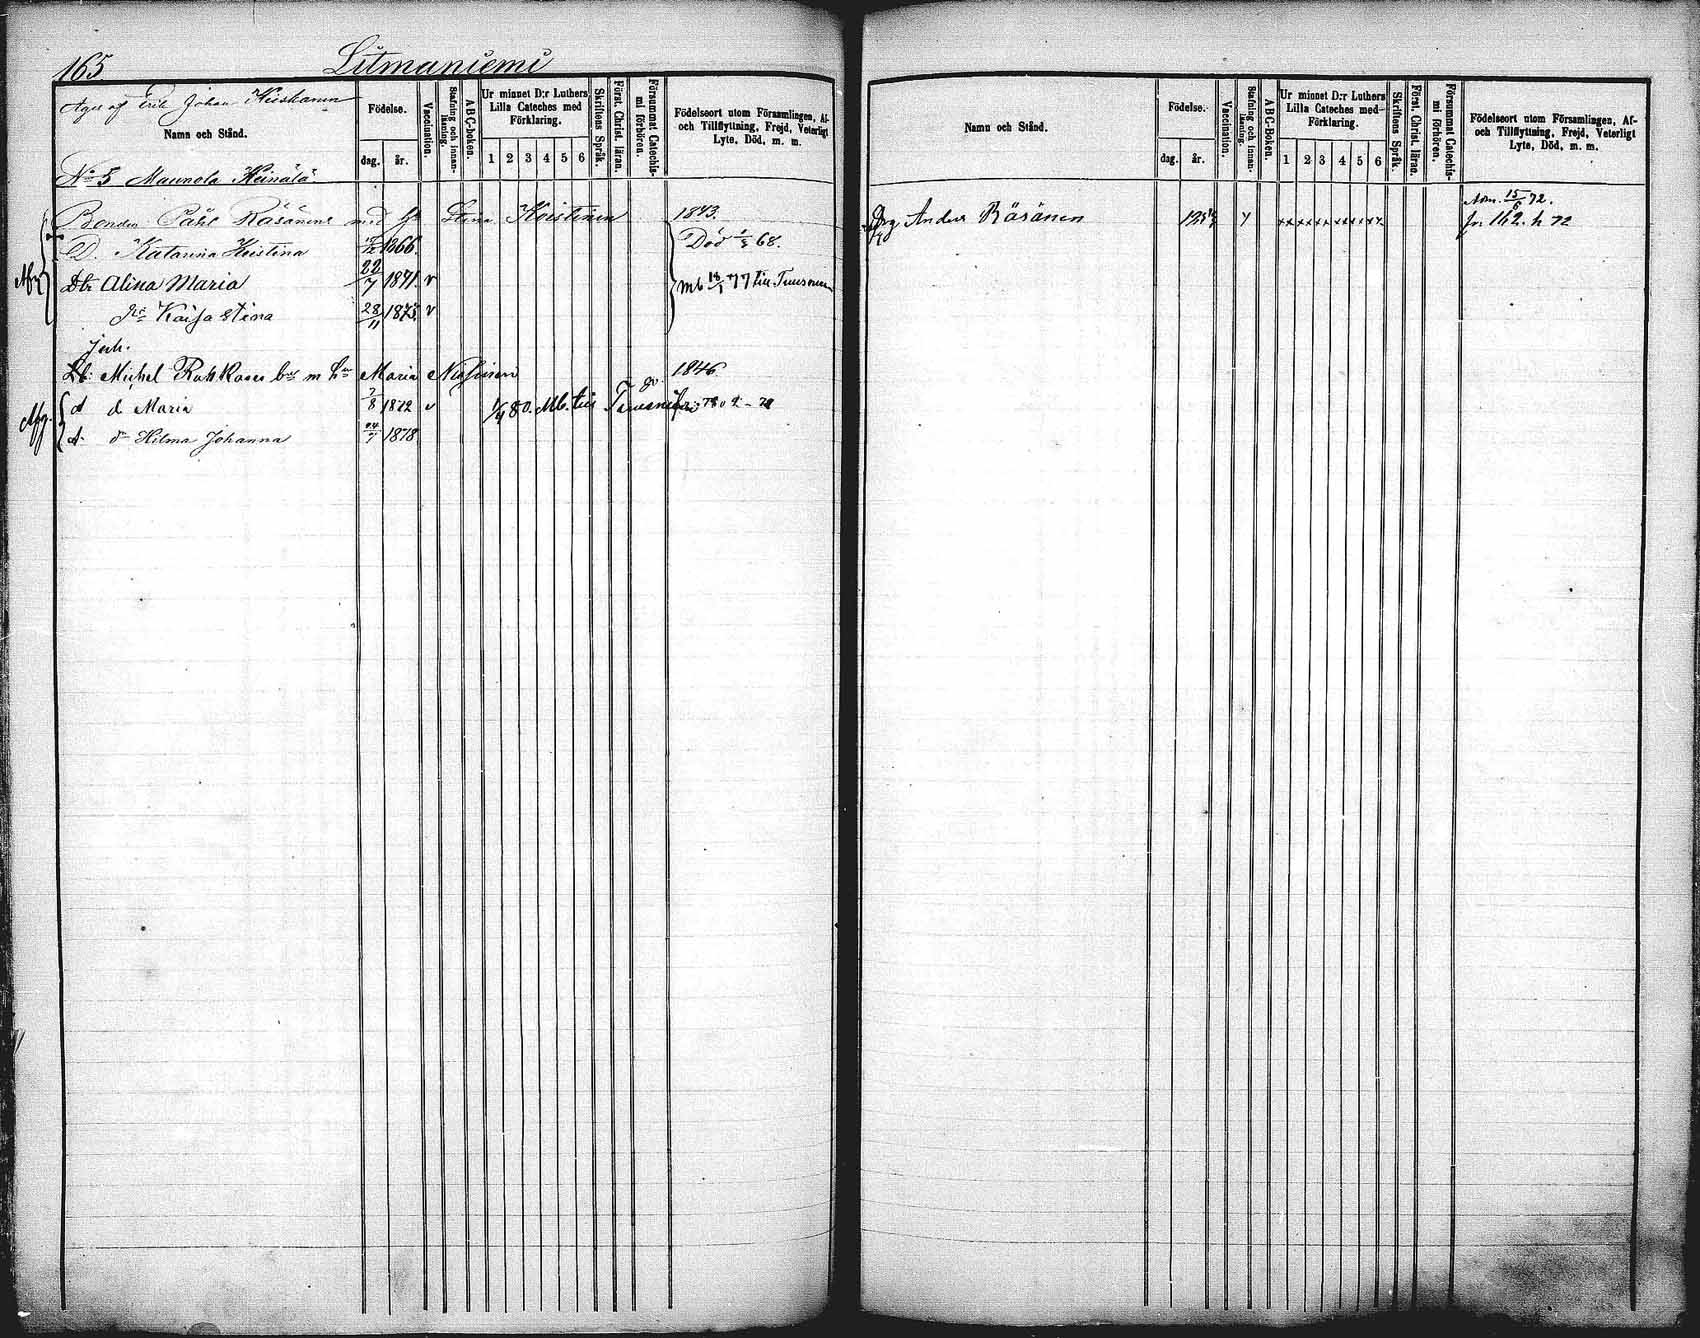 165
Litmaniemi
Äges af Erik Johan Heiskanen
Namn och Stånd.
Födelse.
dag. år.
Vaccination.
Stafning och innanläsning.
A B C-boken.
Ur minnet D:r Luthers Lilla Cateches med Förklaring.
1 2 3 4 5 6
Skriftens Språk.
Först. Christ. läran.
Försummat Catechismi förhören.
Födelseort utom Församlingen, Af- och Tillflyttning, Frejd, Veterligt Lyte, Död, m. m.
No 5 Maunola Heinälä
Bonden Påhl Räsänens med h. Stina Koistinen 1843.
D. Katarina Kristina 1866. Död 68.
Dtr Alina Maria 22/7 1871 v mb 18/1 77 till Tuusniemi
Kaisa Stina 28/11 1875 v
Michel Rokkanes m Maria 1846
d d Maria 1/8 1872 v 80. Mb. till Tuusniemi
d. Hilma Johanna 24/7 1878
Namn och Stånd.
Födelse.
dag. år.
Vaccination.
Stafning och innanläsning.
A B C-boken.
Ur minnet D:r Luthers Lilla Cateches med Förklaring.
1 2 3 4 5 6
Skriftens Språk.
Först. Christ. läran.
Försummat Catechismi förhören.
Födelseort utom Församlingen, Af- och Tillflyttning, Frejd, Veterligt Lyte, Död, m. m.
15/6 72.
Drg Anders Räsänen fr. 162. h 72